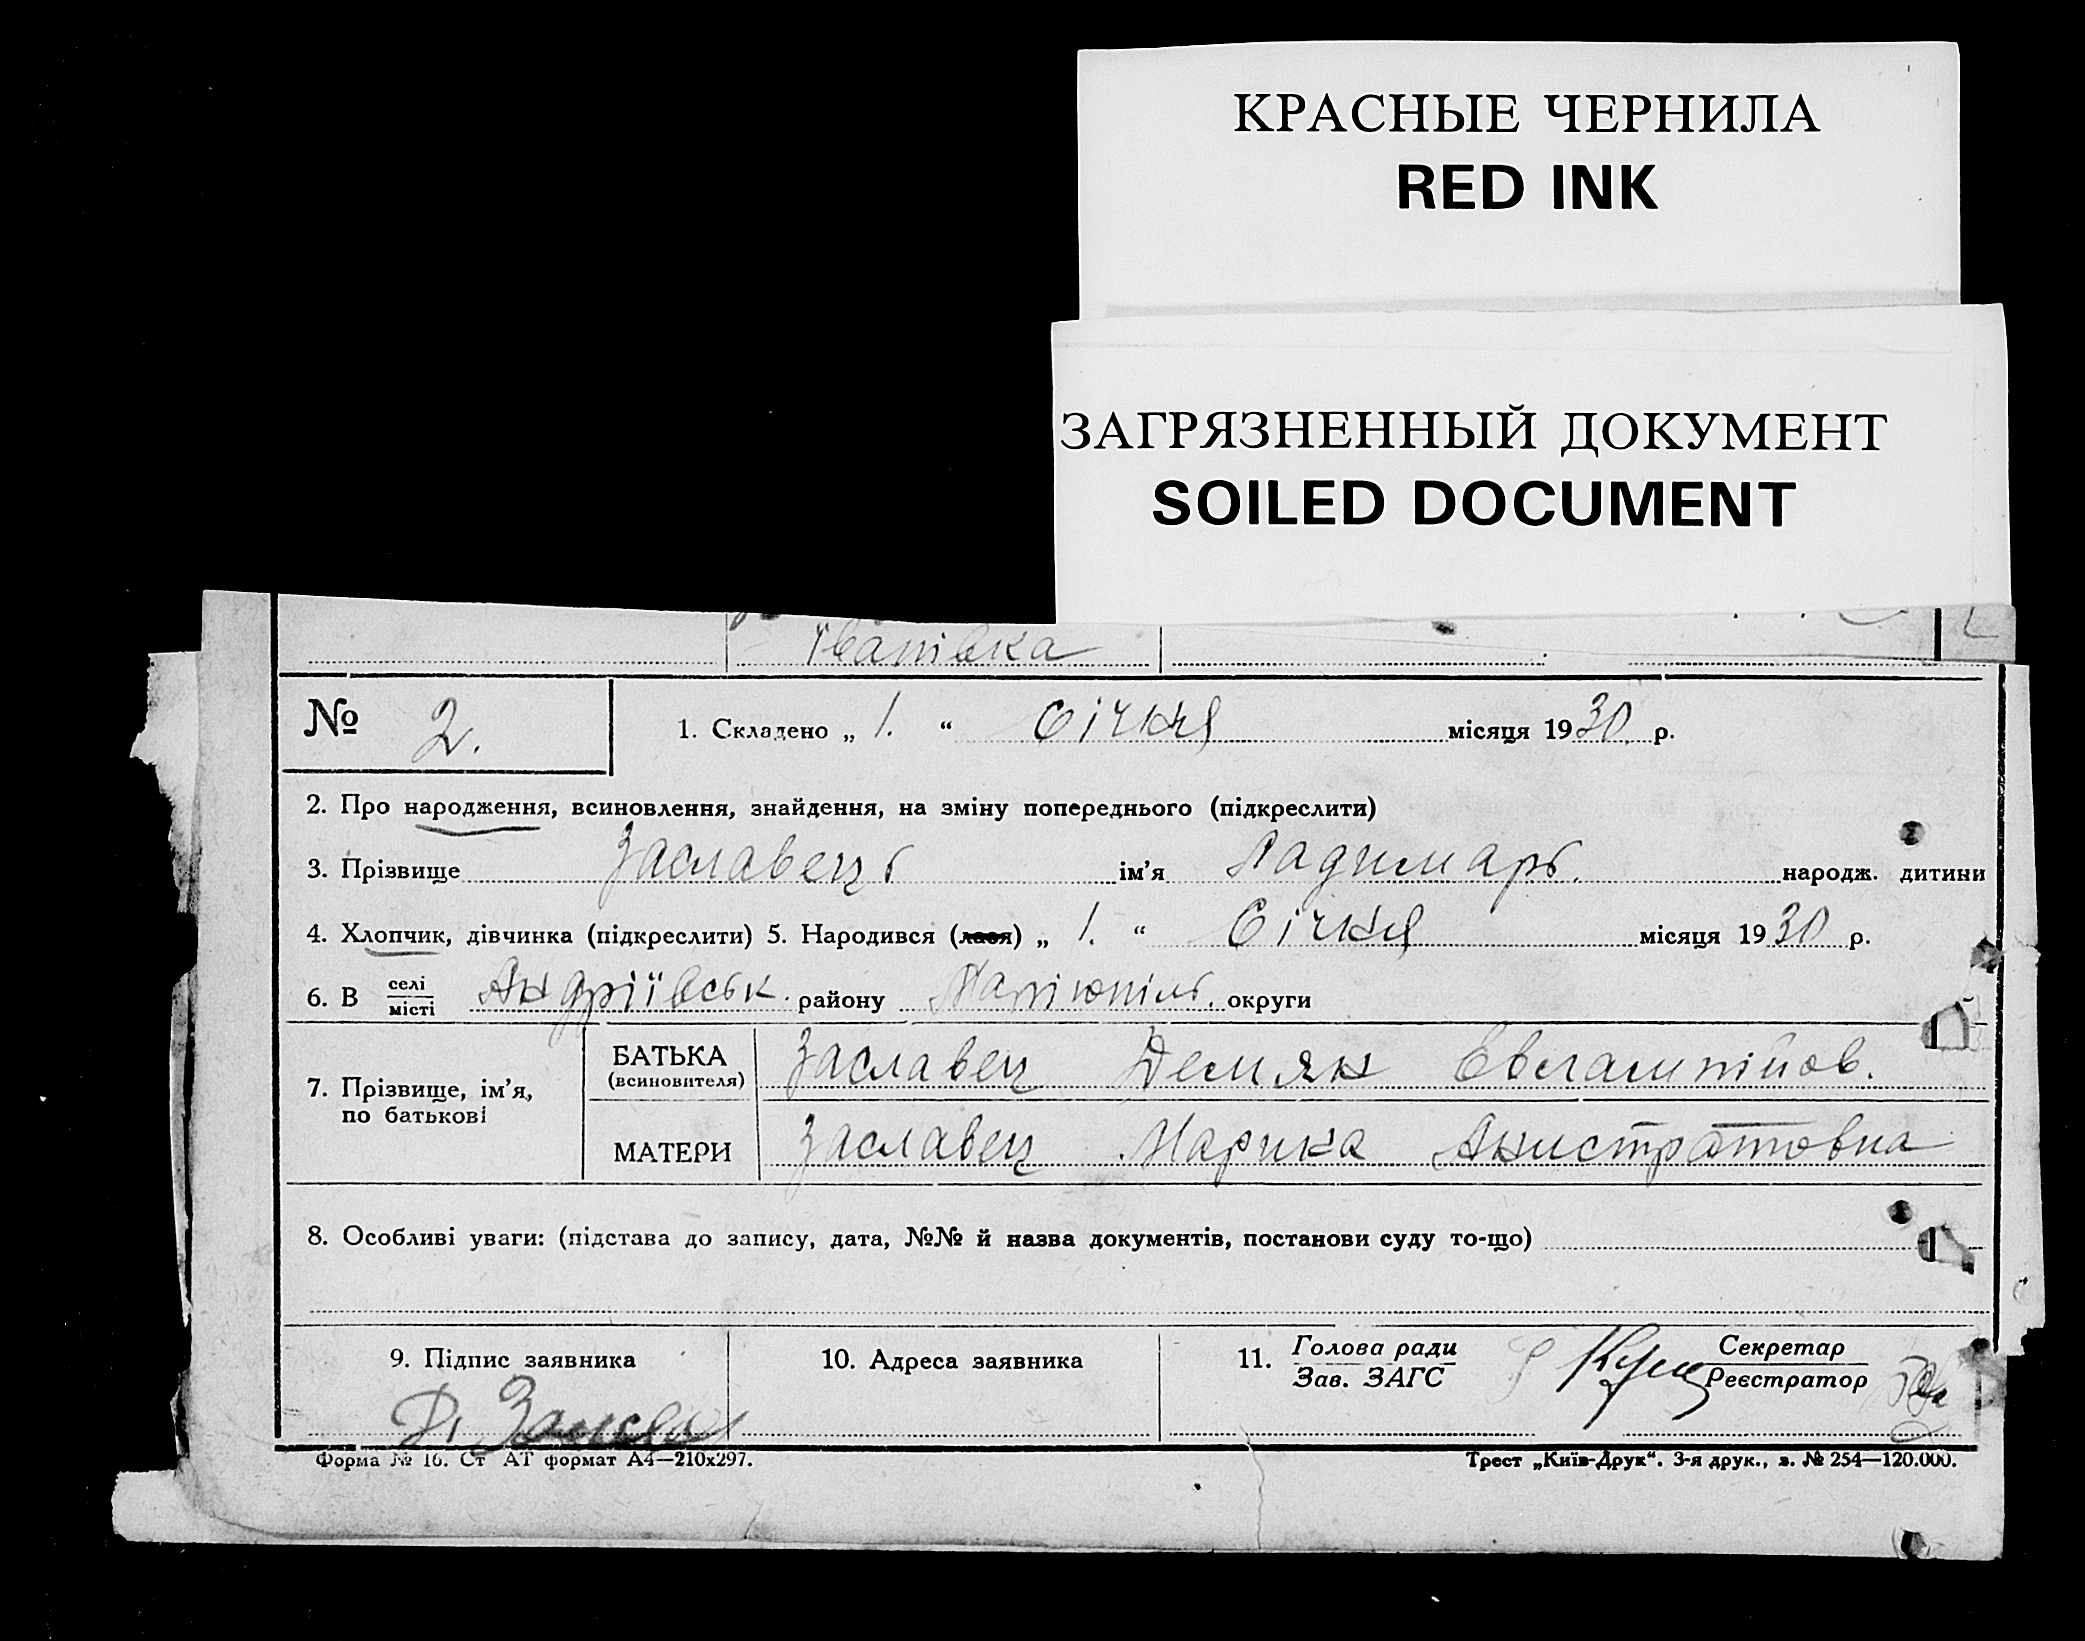 КРАСНЫЕ ЧЕРНИЛА
RED INK
ЗАГРЯЗНЕННЫЙ ДОКУМЕНТ
SOILED DOCUMENT
Іванівка
№ 2. 1. Складено „ 1. “ Січня місяця 1930. р.
2. Про народження, всиновлення, знайдення, на зміну попереднього (підкреслити)
3. Прізвище Заславець ім’я Ладимарь. народж. дитини
4. Хлопчик, дівчинка (підкреслити) 5. Народився (лася) „ 1. “ Січня місяця 1930 р.
6. В селі місті Андріївськ. району Маріюпіль. округи
7. Прізвище, ім’я, по батькові
БАТЬКА (всиновителя) Заславец Демян Евлампійов.
МАТЕРИ Заславец Марика Анистратовна
8. Особливі уваги: (підстава до запису, дата, №№ й назва документів, постанови суду то-що)
9. Підпис заявника 10. Адреса заявника 11. Голова ради Зав. ЗАГС Секретар Реєстратор
Д.
Форма № 16. Ст АТ формат А4—210х297. Трест „Київ-Друк“. 3-я друк., з. № 254—120.000.